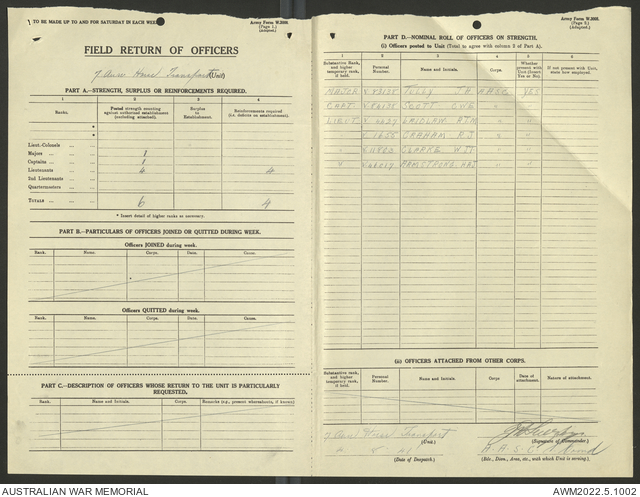 TO BE MADE UP TO AND FOR SATURDAY IN EACH WEEK
Army Form W.3008.
(Page 1.)
(Adapted.)
FIELD RETURN OF OFFICERS
Horse Transport (Unit)
PART A.—STRENGTH, SURPLUS OR REINFORCEMENTS REQUIRED.
1 2 3 4
Ranks. Posted strength counting against authorized establishment (excluding attached). Surplus to Establishment. Reinforcements required (i.e. deficits on establishment).
*
*
Lieut.-Colonels
Majors 1
Captains 1
Lieutenants 4 4
2nd Lieutenants
Quartermasters
TOTALS 6 4
* Insert detail of higher ranks as necessary.
PART B.—PARTICULARS OF OFFICERS JOINED OR QUITTED DURING WEEK.
Officers JOINED during week.
Rank. Name. Corps. Date. Cause.
Officers QUITTED during week.
Rank. Name. Corps. Date. Cause.
PART C.—DESCRIPTION OF OFFICERS WHOSE RETURN TO THE UNIT IS PARTICULARLY REQUESTED.
Rank. Name and Initials. Corps. Remarks (e.g., present whereabouts, if known)
Army Form W.3008.
(Adapted.)
PART D.—NOMINAL ROLL OF OFFICERS ON STRENGTH.
(i) Officers posted to Unit (Total to agree with column 2 of Part A).
1 2 3 4 5 6
Substantive Rank, and higher temporary rank, if held. Personal Number. Name and Initials. Corps. Whether present with Unit (Insert Yes or No). If not present with Unit, state how employed.
MAJOR TULLY J.H. AASC YES
CAPT. SCOTT " "
LIEUT LAIDLAW " "
" GRAHAM R.J. " "
" CLARKE " "
" ARMSTRONG " "
(ii) OFFICERS ATTACHED FROM OTHER CORPS.
Substantive rank, and higher temporary rank, if held. Personal Number. Name and Initials. Corps Date of attachment. Nature of attachment.
Horse Transport
(Unit.)
(Signature of Commander.)
(Date of Despatch.)
(Bde., Divn., Area, etc., with which Unit is serving.)
AUSTRALIAN WAR MEMORIAL
AWM2022.5.1002